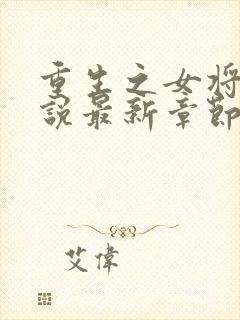 重生之女将
說最新章節
艾偉